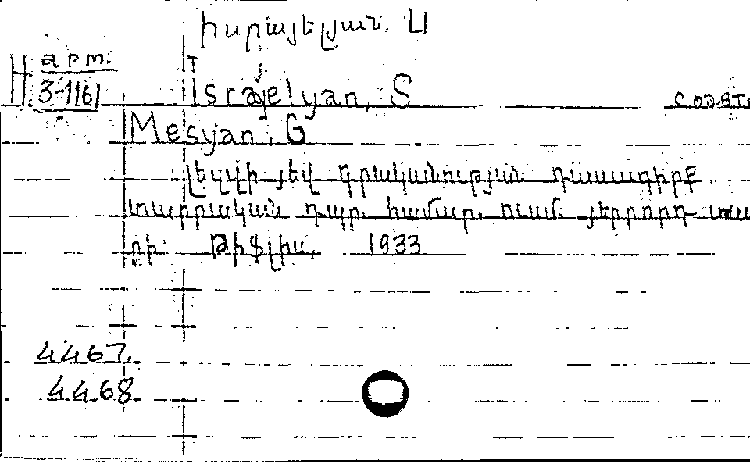 Իսրայելյան Ս
арм.
3-1161
Israjelyan, S
Mesyan, G
Լեզվի յեվ գրականության դասագիրք
տարրական դպր. համար. ուսմ յերրորդ տա
րի Թիֆլիս, 1933
4467.
4468.